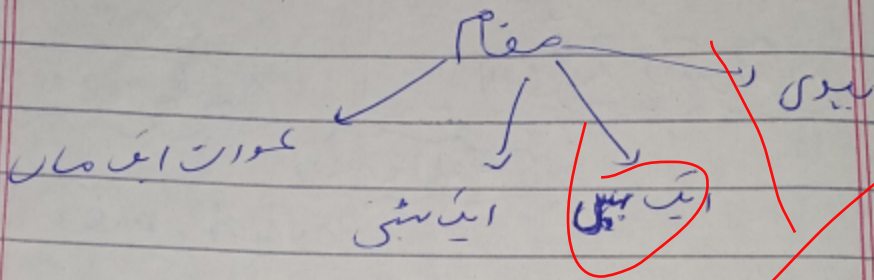 مقام
بیوی
عورت ایک ماں
ایک بیٹی
ایک بہن